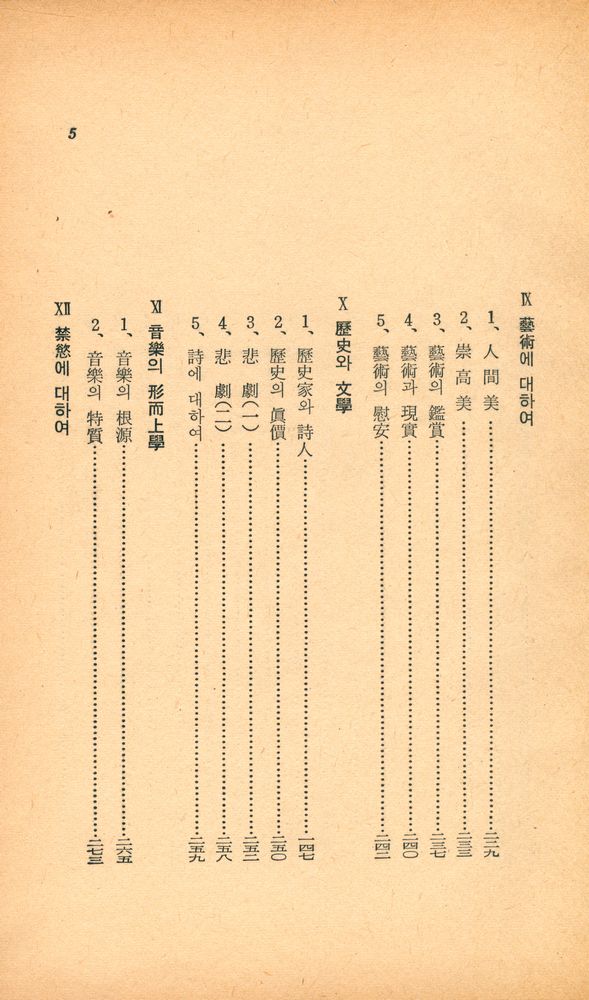 5
Ⅸ 藝術에 대하여
1、人間美……二二九
2、崇高美……二三三
3、藝術의 鑑賞……二三七
4、藝術과 現實……二四〇
5、藝術의 慰安……二四二
Ⅹ 歷史와 文學
1、歷史家와 詩人……一四七
2、歷史의 眞價……二五〇
3、悲劇(一)……二五二
4、悲劇(二)……二五八
5、詩에 대하여……二五九
Ⅺ 音樂의 形而上學
1、音樂의 根源……二六五
2、音樂의 特質……二七三
Ⅻ 禁慾에 대하여